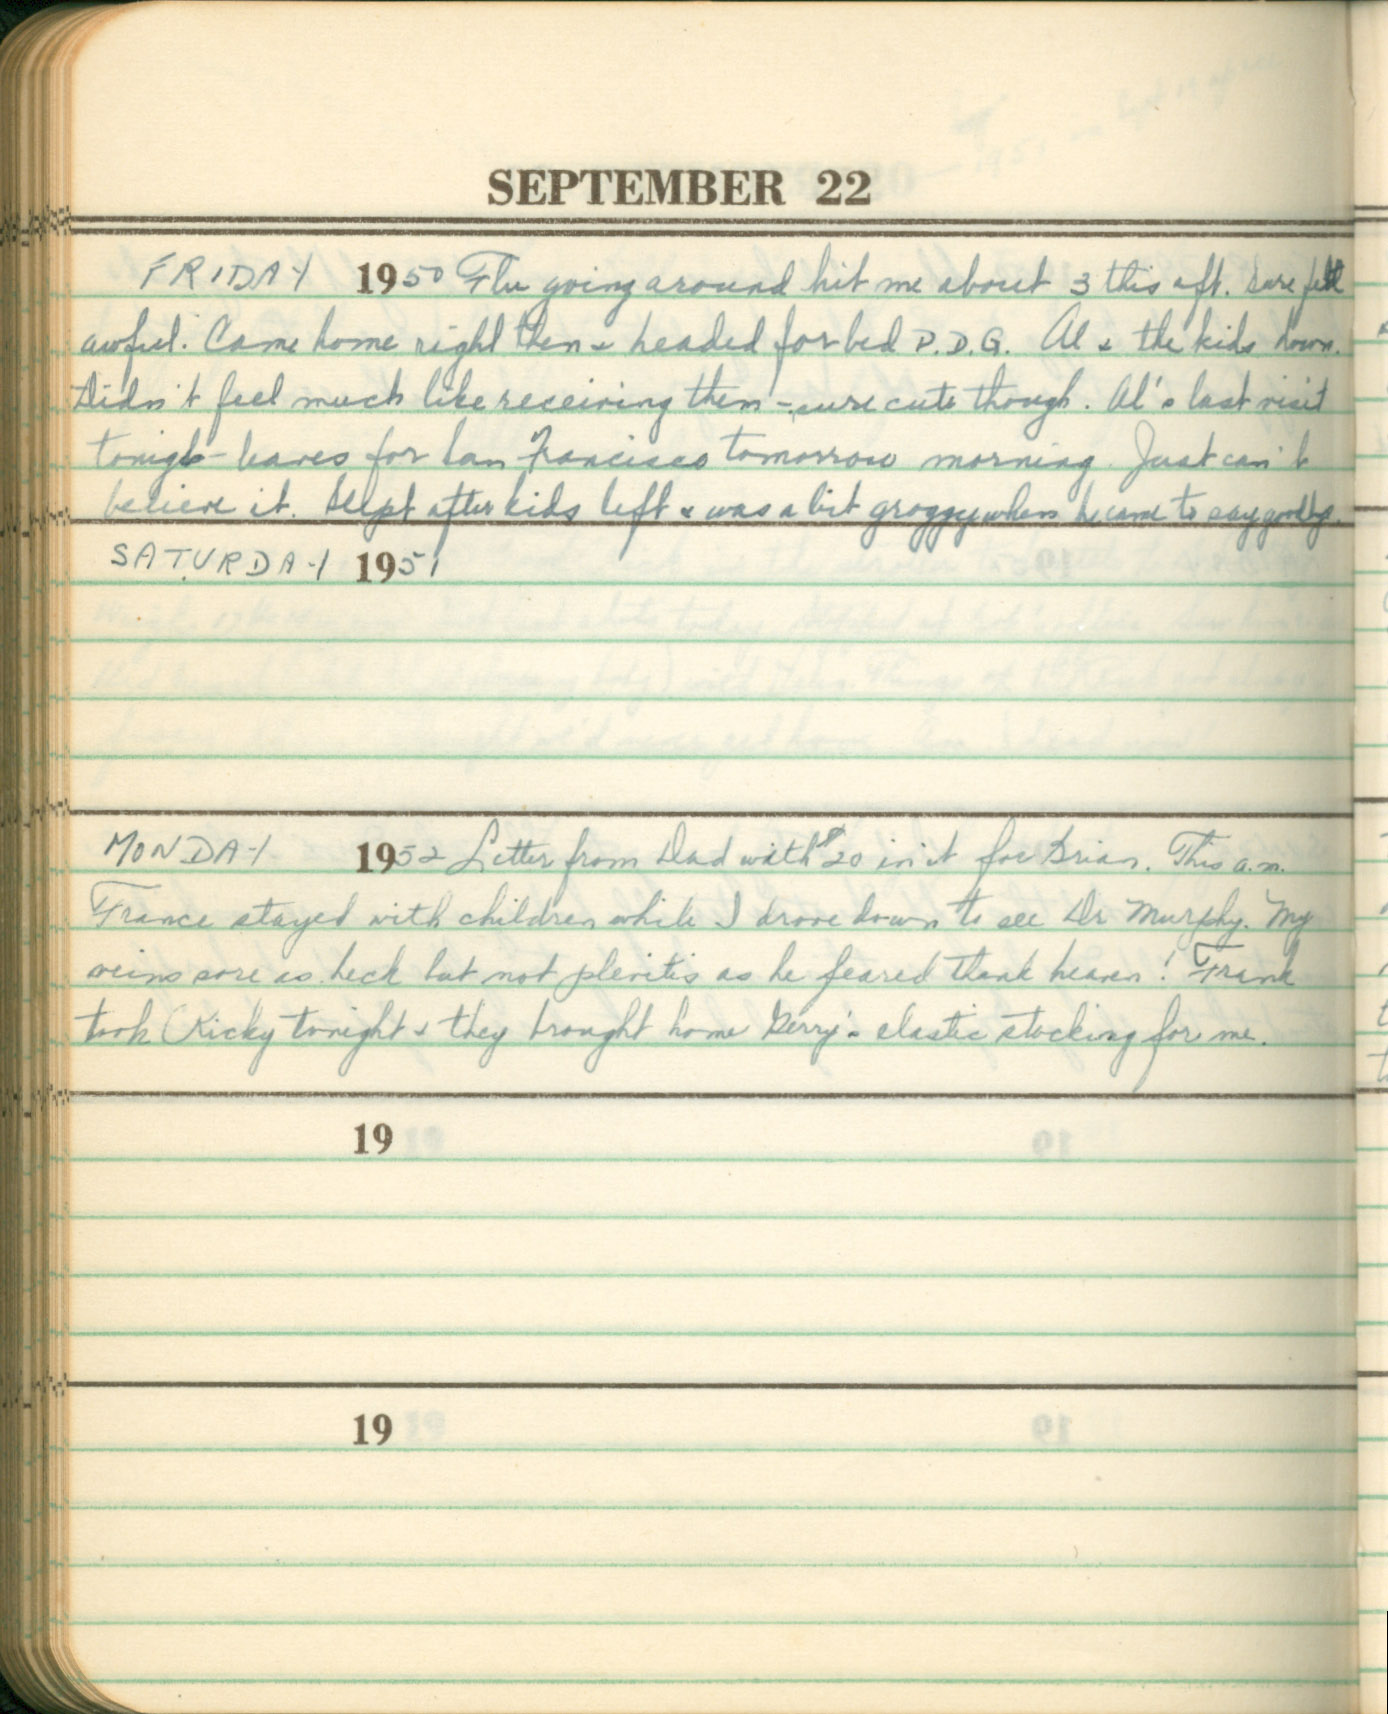 SEPTEMBER 22
FRIDAY 1950 Flu going around hit me about 3 this aft. Sure felt
awful. Came home right then & headed for bed P.D.G. Al & the kids down.
Didn't feel much like receiving them - sure cute though. Al's last visit
tonight - leaves for San Francisco tomorrow morning. Just can't
believe it. Slept after kids left & was a bit groggy when he came to say goodbye.
SATURDAY 1951
MONDAY 1952 Letter from Dad with $20 in it for Brian. This a.m.
France stayed with children while I drove down to see Dr Murphy. My
veins sore as heck but not plevitis as he feared thank heaven! Frank
took Ricky tonight & they brought home Gerry's elastic stocking for me.
19
19